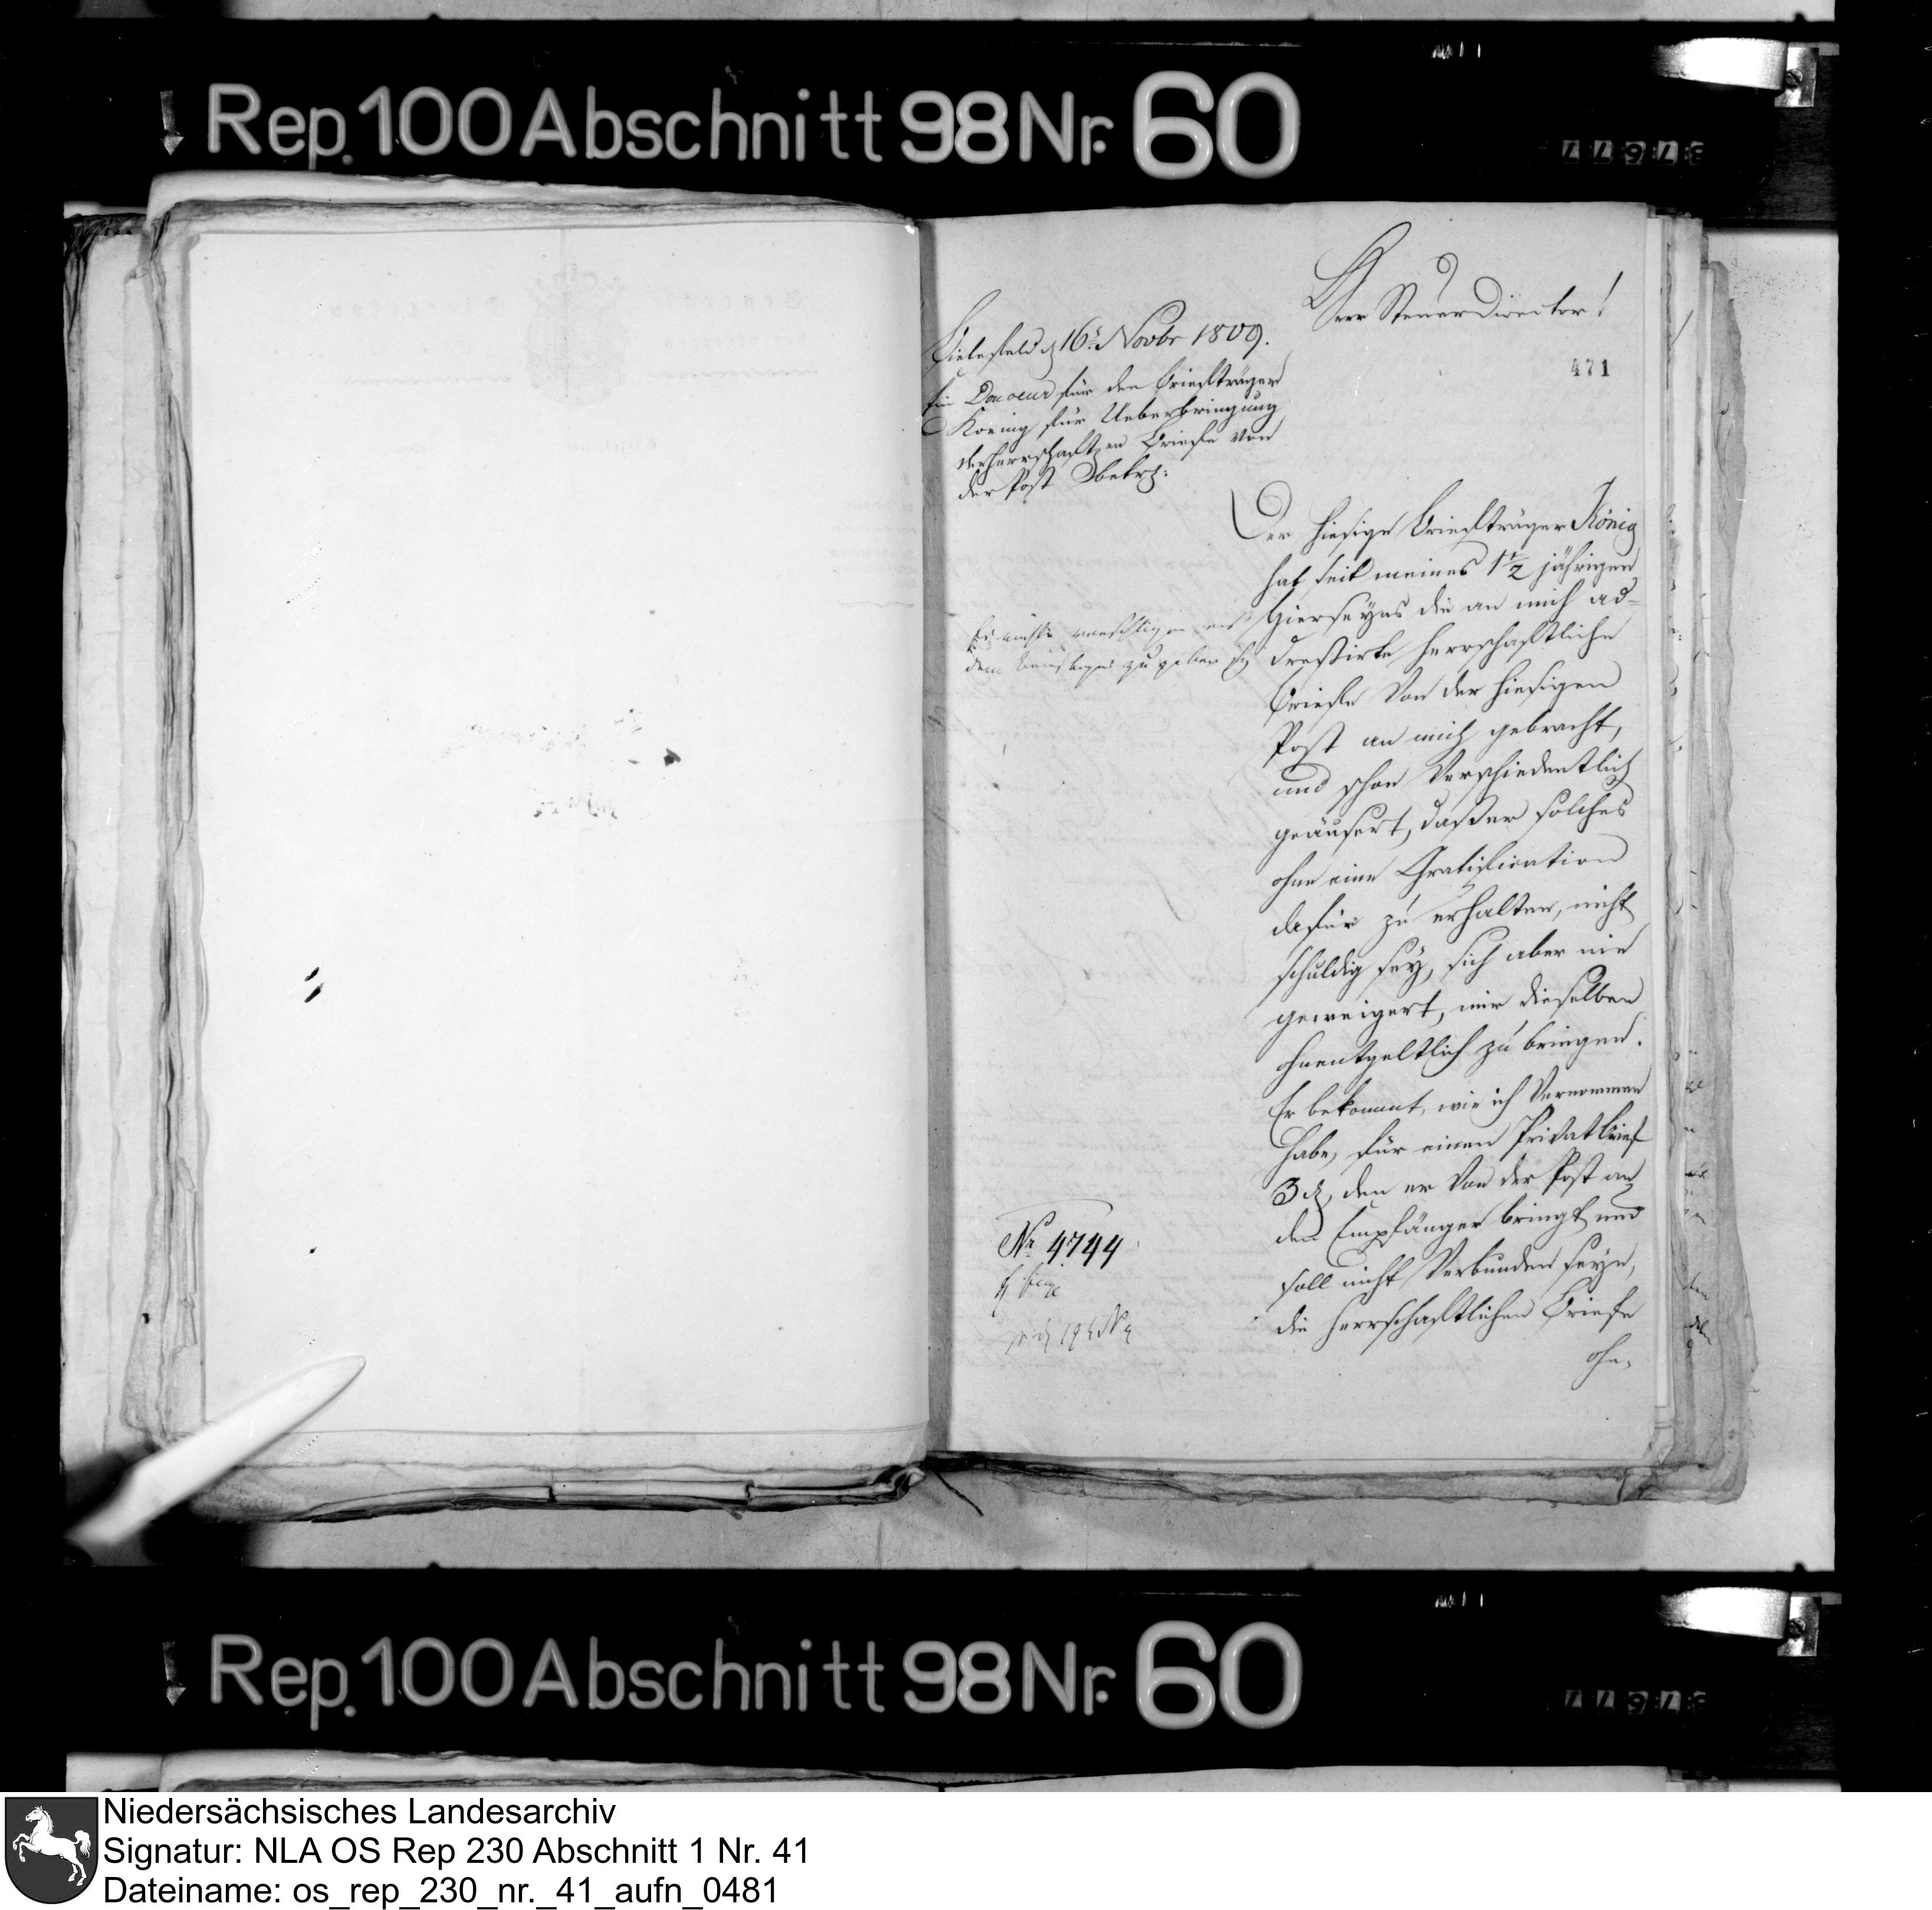 Rep. 100 Abschnitt 98 Nr. 60
37677
Herr SteuerDirector!
471
Bielefeld d 16t Novbr 1809.
Ein Douceur für den Briefträger
Koenig für Ueberbringung
der herrschaftl en Briefe von
der Post betrf:
Der hiesige Briefträger König
hat seit meines 1½ jährigen
Hierseyns die an mich ad-
dressirte herrschaftliche
Briefe von der hiesigen
Post an mich gebracht,
und schon verschiedentlich
geäusert, daß er solches
ohne eine Gratification
dafür zu erhalten, nicht
schuldig sey, sich aber nie
geweigert, mir dieselben
ohnentgeltlich zu bringen.
Er bekommt, wie ich vernommen
habe, für einen Privatbrief
3 d, den er von der Post an
den Empfänger bringt und
soll nicht verbunden seyn,
die herrschaftlichen Briefe
ohn-
dem zu geben
No 4744
Rep. 100 Abschnitt 98 Nr. 60
37677
Niedersächsisches Landesarchiv
Signatur: NLA OS Rep 230 Abschnitt 1 Nr. 41
Dateiname: os_rep_230_nr._41_aufn_0481